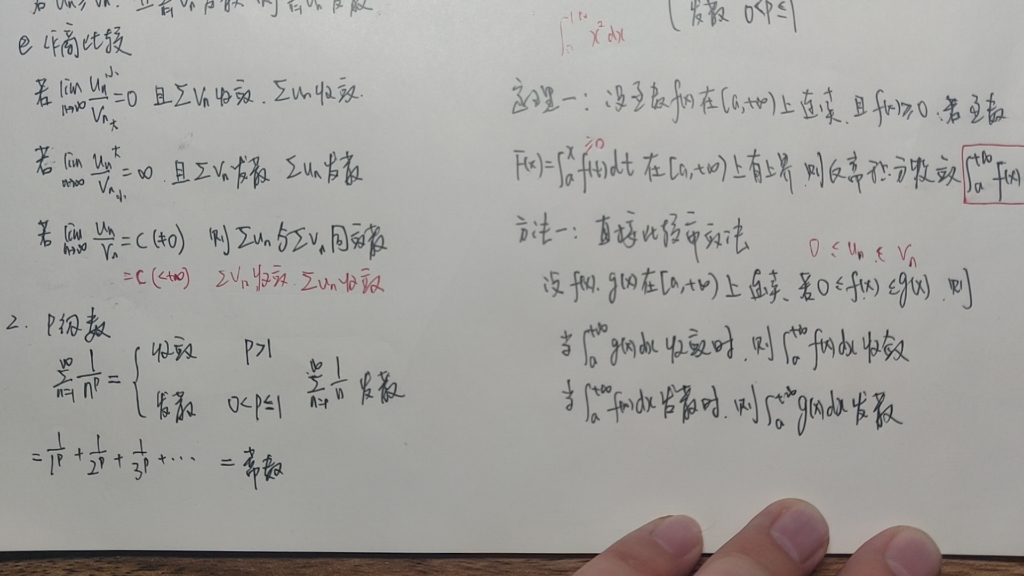 ② 作商比较
若 lim n→∞ Un/Vn = 0 且 ΣVn 收敛. ΣUn 收敛.
若 lim n→∞ Un/Vn = ∞ 且 ΣVn 发散 ΣUn 发散
若 lim n→∞ Un/Vn = C (≠0) 则 ΣUn 与 ΣVn 同敛散
= C (<+∞) ΣVn 收敛. ΣUn 收敛
2. P级数
∑ n=1 ∞ 1/n^p = { 收敛 P>1
发散 0<P≤1
∑ n=1 ∞ 1/n 发散
= 1/1^p + 1/2^p + 1/3^p + ··· = 常数
发散 0<P≤1
x² dx
定理一: 设函数f(x) 在[a,+∞)上连续, 且 f(x)≥0. 若函数
≥0
F(x)=∫a^x f(t)dt 在[a,+∞)上有上界, 则反常积分收敛 ∫a^+∞ f(x)
方法一: 直接比较审敛法
0 ≤ Un ≤ Vn
设 f(x), g(x) 在[a,+∞)上连续, 若0≤f(x)≤g(x), 则
当 ∫a^+∞ g(x)dx 收敛时, 则 ∫a^+∞ f(x)dx 收敛
当 ∫a^+∞ f(x)dx 发散时, 则 ∫a^+∞ g(x)dx 发散